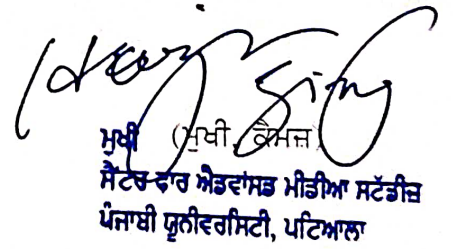 ਮੁਖੀ (ਮੁਖੀ, ਕੈਮਜ਼)
ਸੈਂਟਰ ਫਾਰ ਐਡਵਾਂਸਡ ਮੀਡੀਆ ਸਟੱਡੀਜ਼
ਪੰਜਾਬੀ ਯੂਨੀਵਰਸਿਟੀ, ਪਟਿਆਲਾ